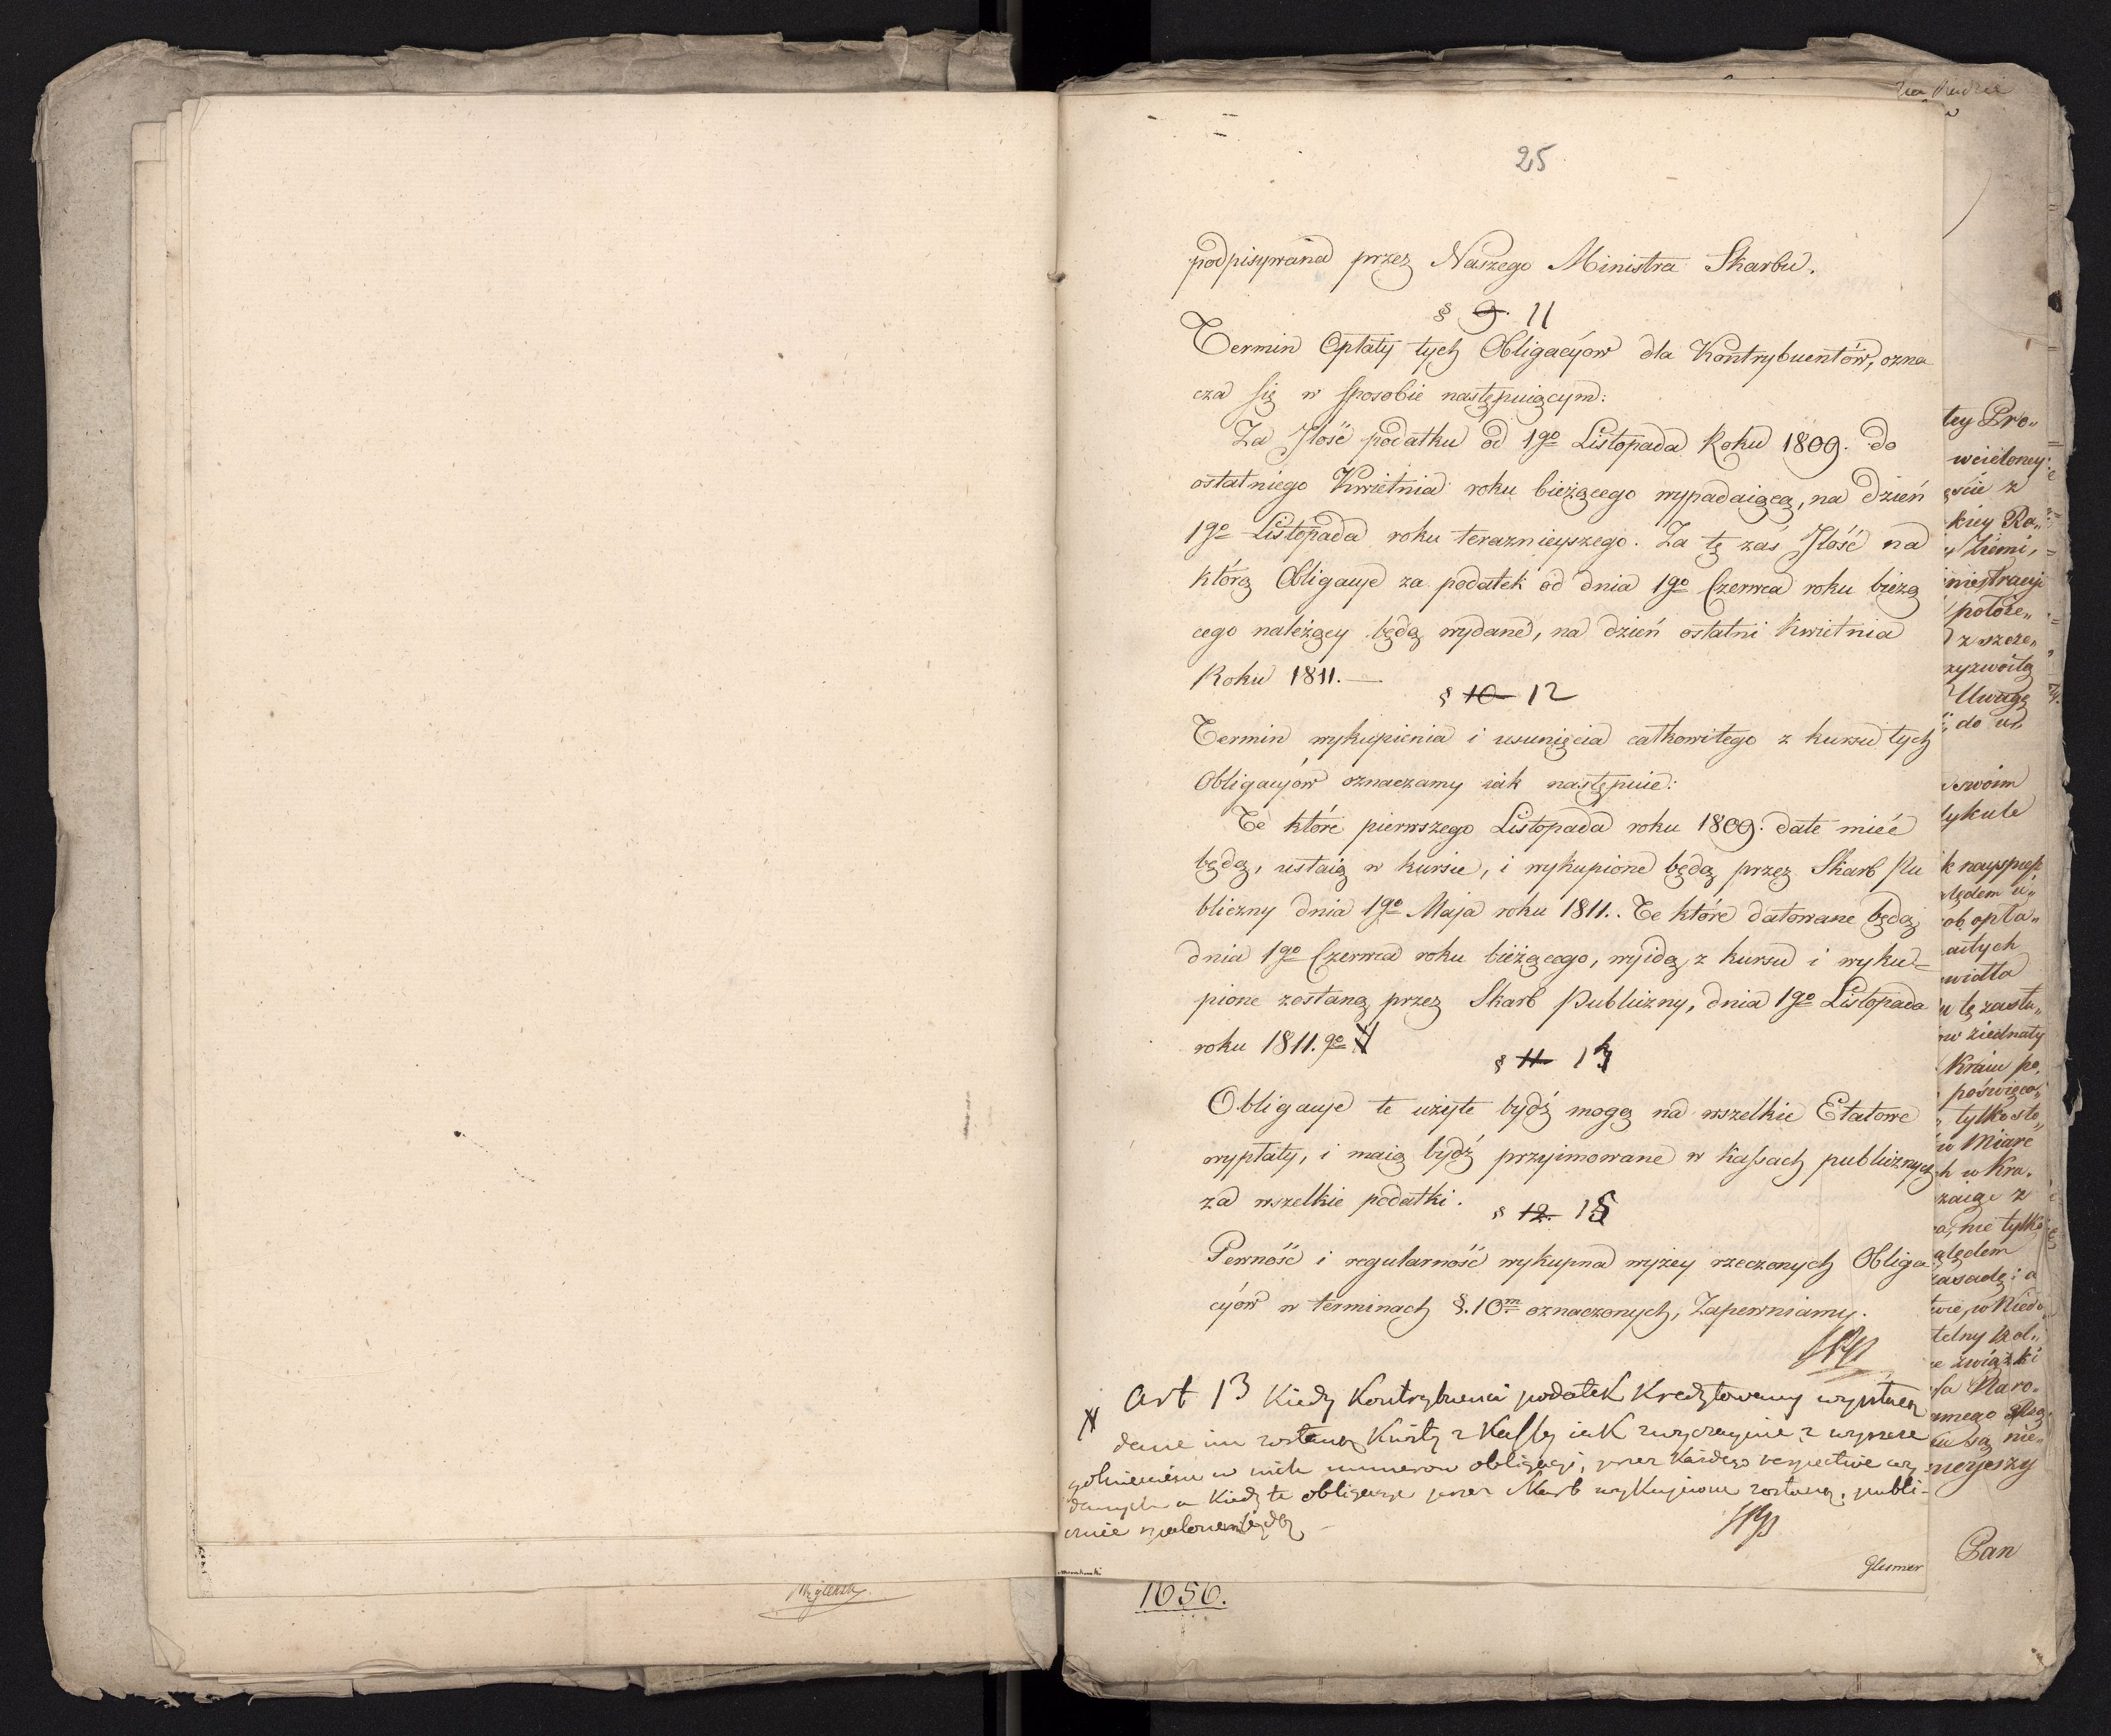 25
podpisywana przez Naszego Ministra Skarbu.
§ 9. 11
Termin Opłaty tych Obligacyow dla Kontrybuentów, ozna
cza się w sposobie następuiącym:
Za Ilość podatku od 1go Listopada Roku 1809. do
ostatniego Kwietnia roku bieżącego wypadaiącą, na dzień
1go Listopada roku teraznieyszego. Za tę zaś Ilość na
którą Obligacye za podatek od dnia 1go Czerwca roku bieżą
cego należący będą wydane, na dzień ostatni kwietnia
Roku 1811.—
§ 10 12
Termin wykupienia i usunięcia całkowitego z kursu tych
Obligacyów oznaczamy iak następuie:
Te które pierwszego Listopada roku 1809. date mieć
będą, ustaią w kursie, i wykupione będą przez Skarb Pu
bliczny dnia 1go Maja roku 1811. Te które datowane będą
dnia 1go Czerwca roku bieżącego, wyidą z kursu i wyku=
pione zostaną przez Skarb Publiczny, dnia 1go Listopada
roku 1811.go #
§ 11 14
Obligacye te użyte bydź mogą na wszelkie Etatowe
wypłaty, i maią bydź przyimowane w kassach publicznych
za wszelkie podatki.
§ 12. 15
Pewność i regularność wykupna wyżey rzeczonych Obliga
cyów w terminach §. 10m oznaczonych, Zapewniamy.
# Art 13 Kiedy Kontrybuenci podatek Kredytowany wypłacą
dane im zostaną Kwity z Kassy iak zwyczaynie z wyszcze
gólnieniem w nich numerow obligacyi, przez Każdego respective wy
danych a Kiedy te obligacye przez Skarb wykupione zostaną, publi-
cznie spalone będą
Glesmer
1656.
tey Pro„
wcieloney
kiey Ra„
Ziemi,
położe„
z szcze„
Uwagę
do
swoim
tykule
względem
opła„
tę zasłu„
ziednały
Kraiu po„
poświęco„
tylko sto„
Miare
w Kra„
nie tylko
względem
zasadę i
związki
Naro„
są nie„
Pan